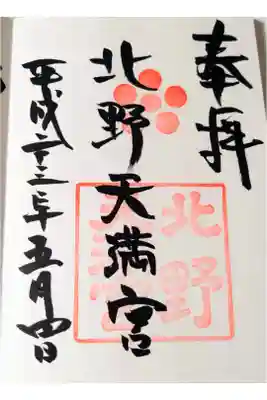 奉拝
北野天満宮
平成二十三年五月四日
北野